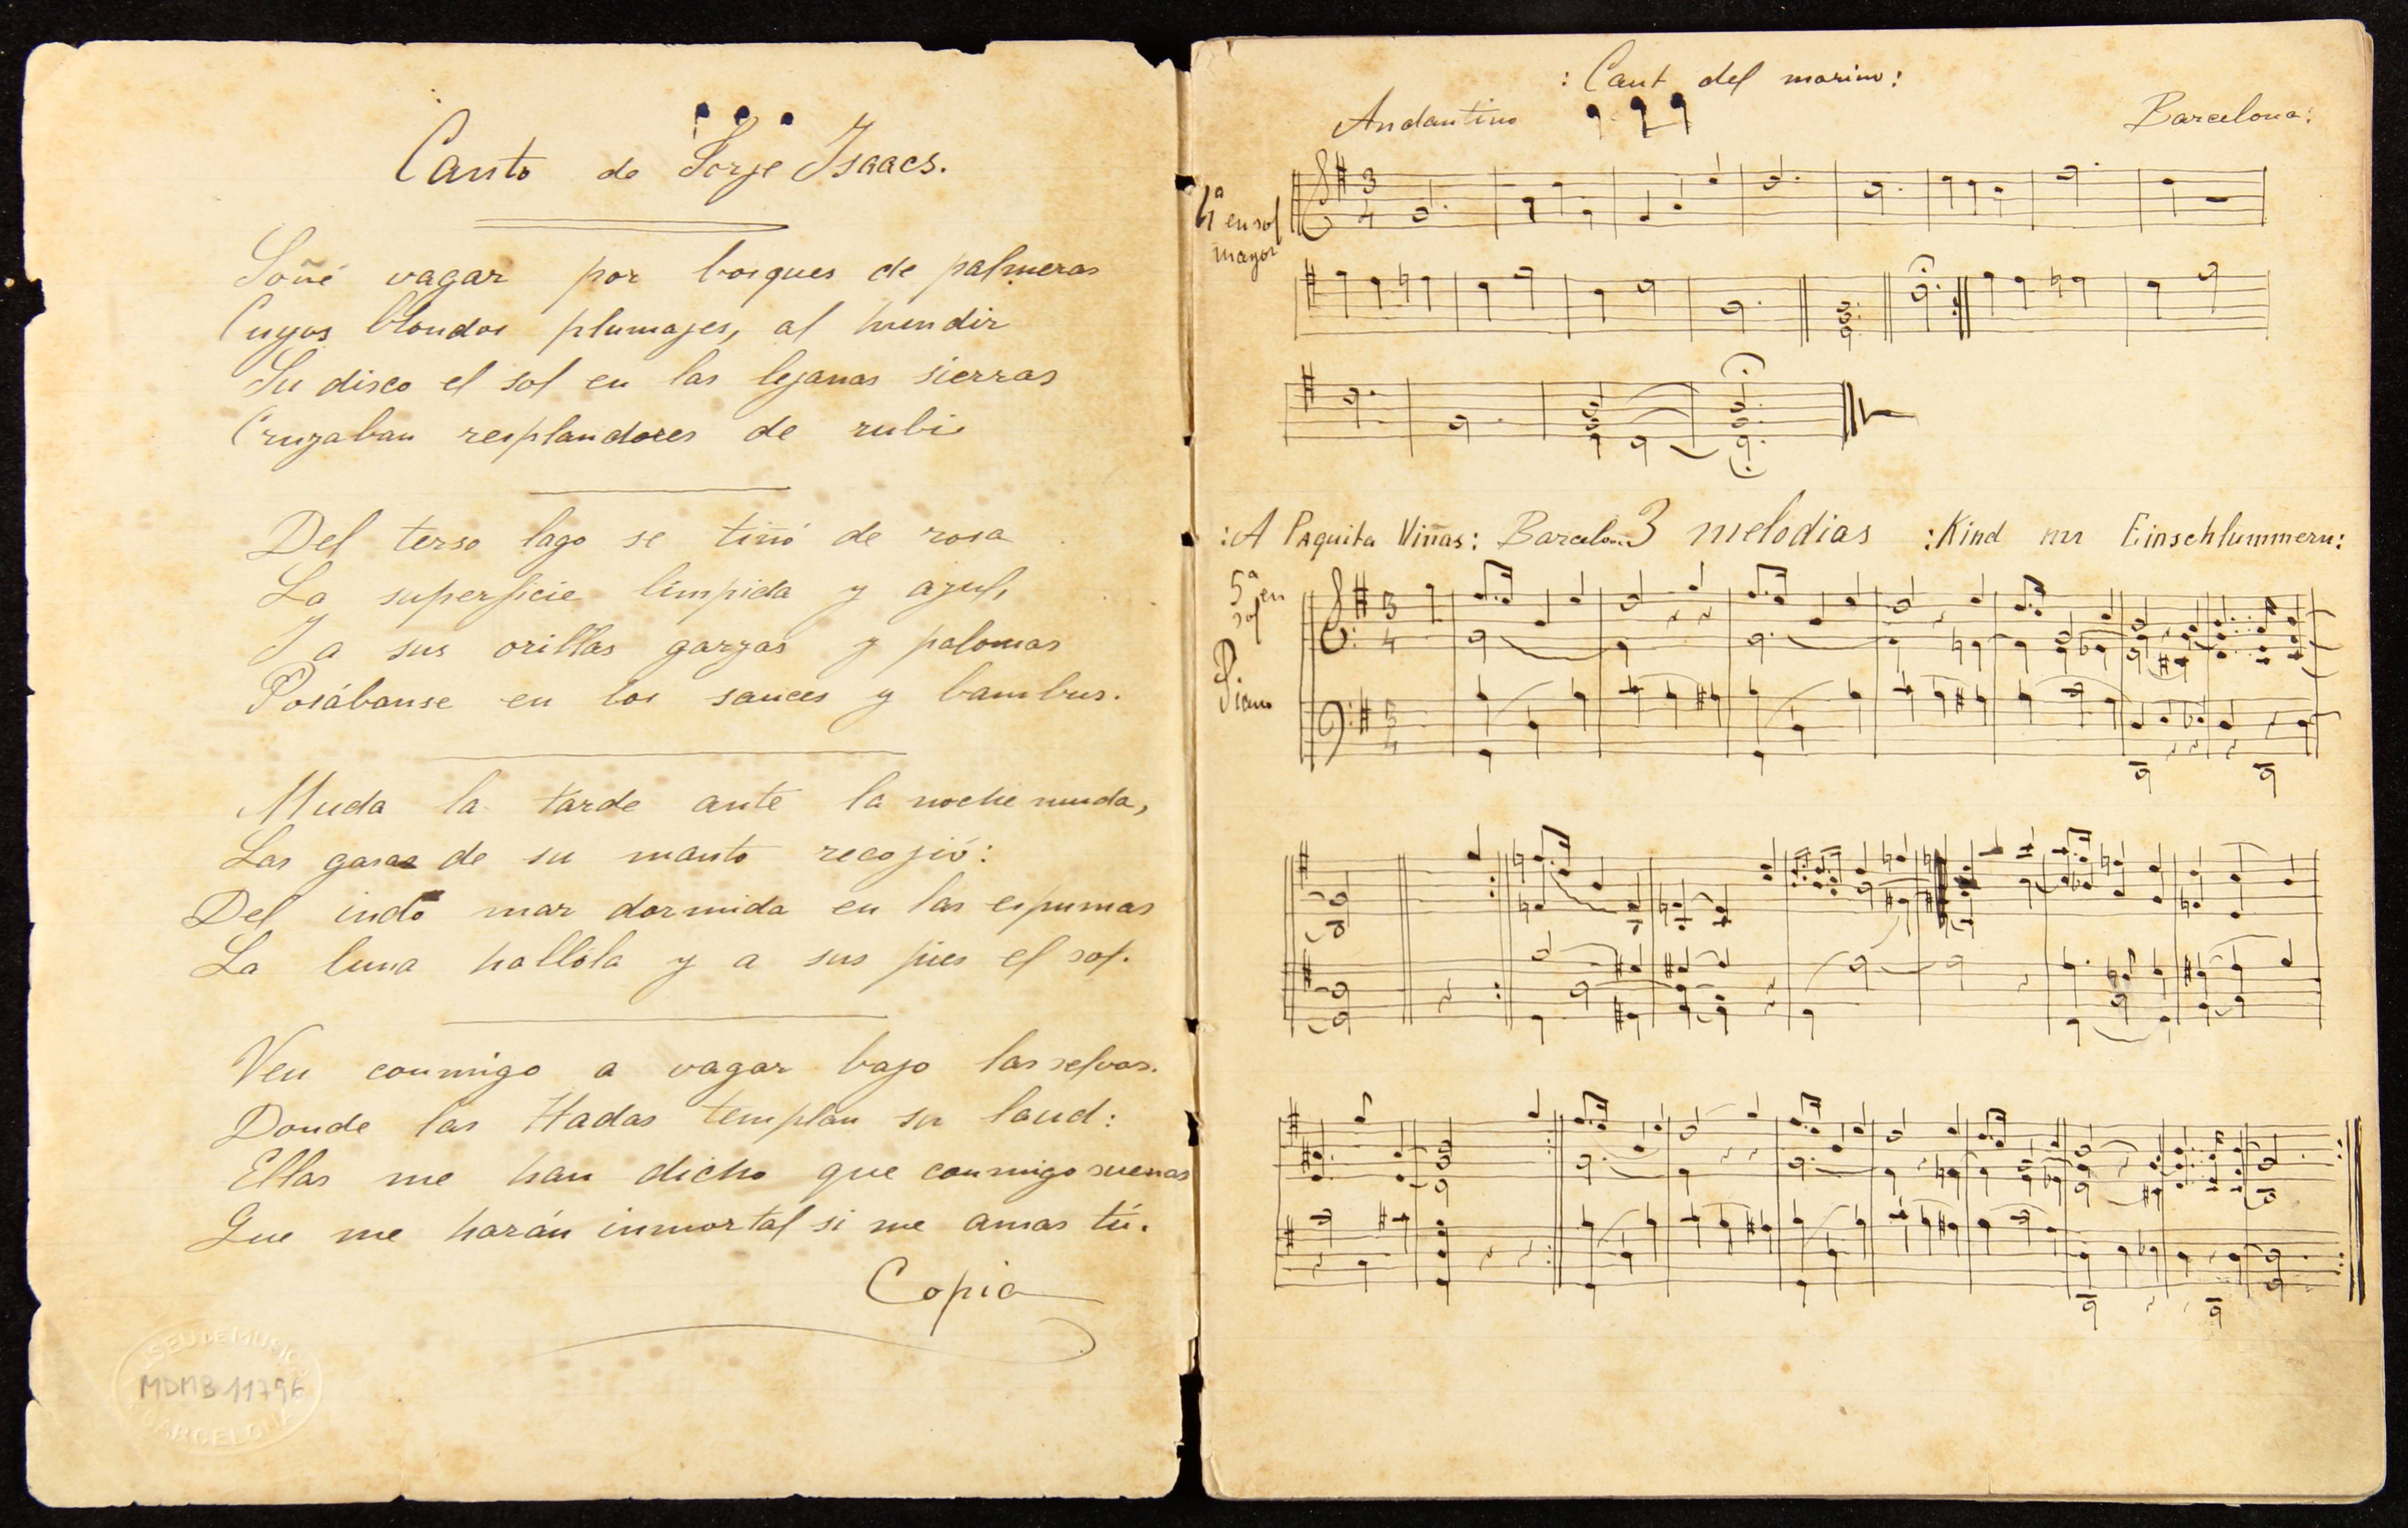 Canto de Jorje Isaacs.
Soñé vagar por bosques de palmeras
Cuyos blondos plumajes, al hundir
Su disco el sol en las lejanas sierras
Cruzaban resplandores de rubí
Del terso lago se tiñó de rosa
La superficie límpida y azul,
Y a sus orillas garzas y palomas
Posábanse en los sauces y bambus.
Muda la tarde ante la noche muda,
Las gasas de su manto recojió:
Del indo mar dormida en las espumas
La luna hallóla y a sus pies el sol.
Ven conmigo a vagar bajo las selvas.
Donde las Hadas templan su laud:
Ellas me han dicho que conmigo suenas
Que me harán inmortal si me amas tú.
Copia
MUSEU DE MUSICA
MDMB 11796
BARCELONA
: Cant del marino:
Andantino
Barcelona:
4ª en sol
mayor
3
4
: A Paquita Viñas: Barcelona 3 melodias : Kind im Einschlummern:
5ª en
sol
Piano
3
4
3
4